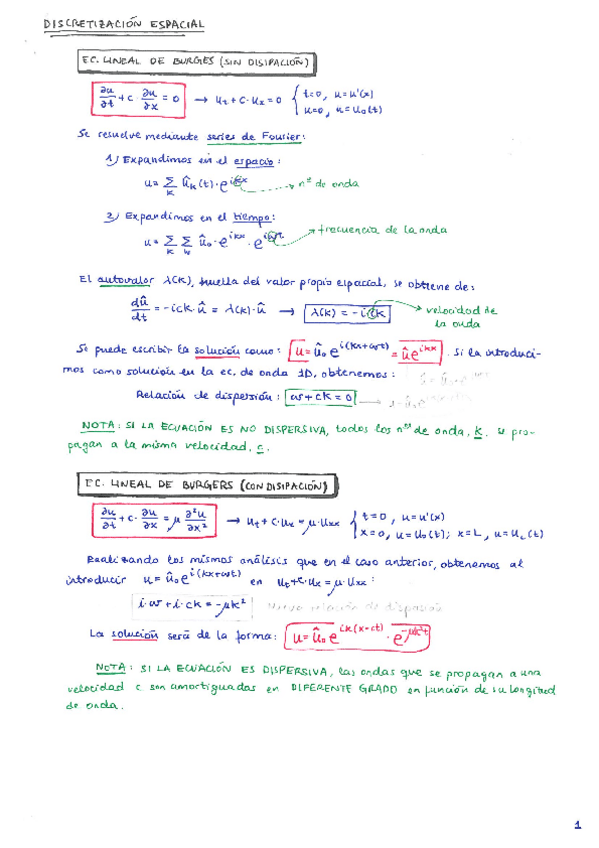 DISCRETIZACIÓN ESPACIAL
EC. LINEAL DE BURGES (SIN DISIPACIÓN)
∂u/∂t + c·∂u/∂x = 0 → u_t + c·u_x = 0 { t=0, u=u'(x)
u=0, u=u₀(t)
Se resuelve mediante series de Fourier:
1) Expandimos en el espacio:
u = Σ_k û_k(t)·e^{ikx} → nº de onda
2) Expandimos en el tiempo:
u = Σ_k Σ_w û₀·e^{ikx}·e^{iωt} → frecuencia de la onda
El autovalor λ(k), huella del valor propio espacial, se obtiene de:
dû/dt = -ick·û = λ(k)·û → λ(k) = -ick → velocidad de
la onda
Se puede escribir la solución como: u=û₀e^{i(kx+ωt)} = ûe^{ikx}. Si la introduci-
mos como solución en la ec. de onda 1D, obtenemos:
Relación de dispersión: ω+ck=0 →
NOTA: SI LA ECUACIÓN ES NO DISPERSIVA, todos los nos de onda, k, se pro-
pagan a la misma velocidad, c.
EC. LINEAL DE BURGERS (CON DISIPACIÓN)
∂u/∂t + c·∂u/∂x = μ ∂²u/∂x² → u_t + c·u_x = μ·u_xx { t=0, u=u'(x)
x=0, u=u₀(t); x=L, u=u_L(t)
Realizando los mismos análisis que en el caso anterior, obtenemos al
introducir u=û₀e^{i(kx+ωt)} en u_t+c·u_x=μ·u_xx:
i·ω+i·ck=-μk² nueva relación de dispersión
La solución será de la forma: u=û₀e^{ik(x-ct)}·e^{-μk²t}
NOTA: SI LA ECUACIÓN ES DISPERSIVA, las ondas que se propagan a una
velocidad c son amortiguadas en DIFERENTE GRADO en función de su longitud
de onda.
1